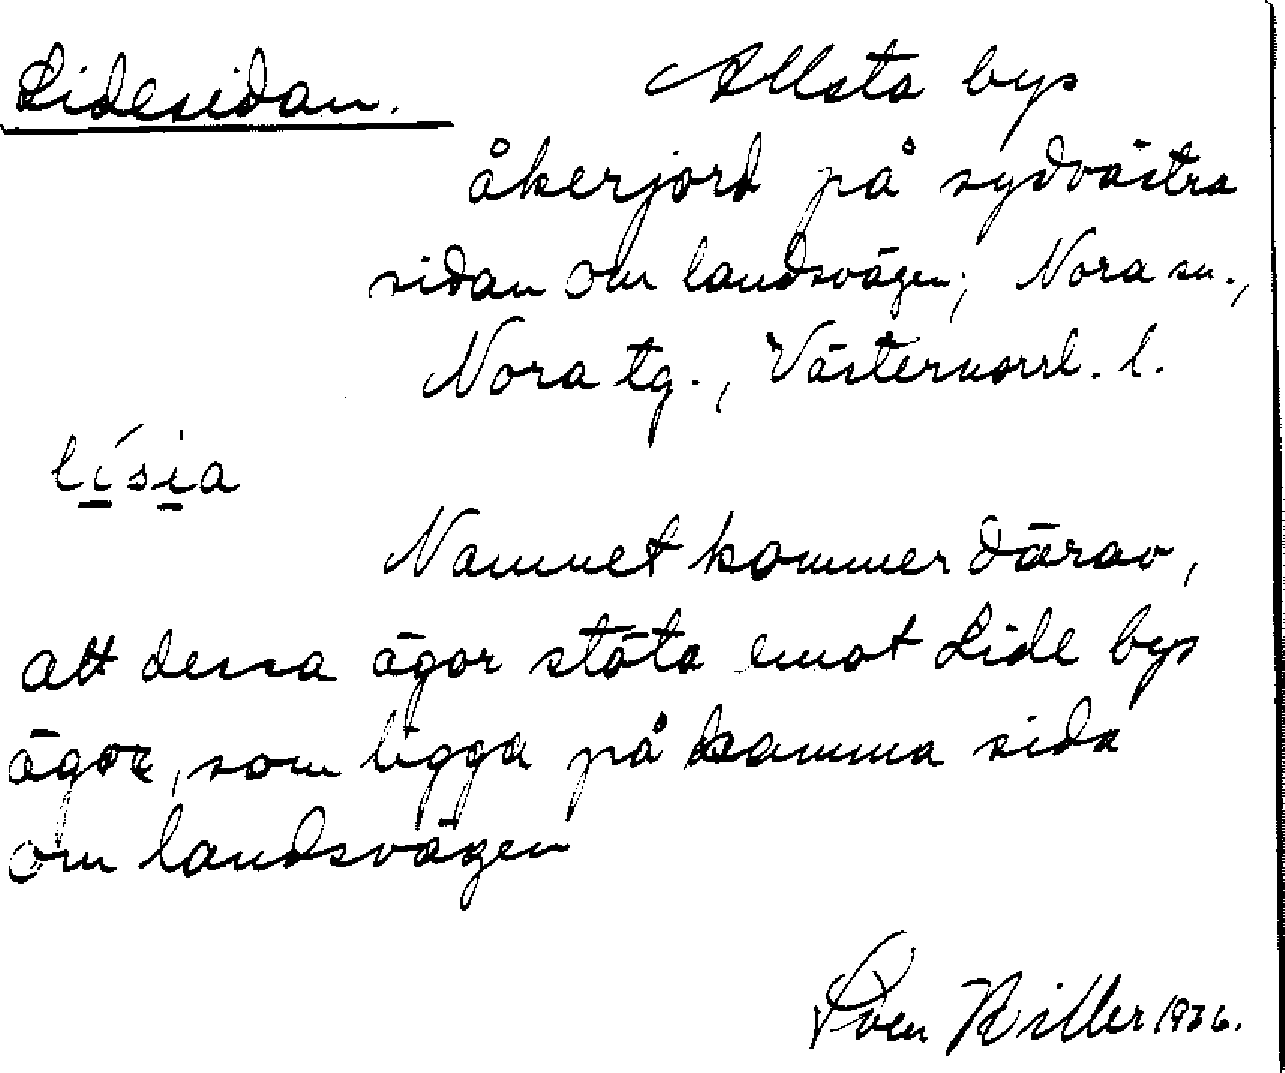 Lidesidan. Allsta bys
åkerjord på sydvästra
sidan om landsvägen; Nora sn.,
Nora tg., Västernorrl. l.
li̱´si̱a
Namnet kommer därav,
att dessa ägor stöta emot Lide bys
ägor, som ligga på samma sida
om landsvägen
Sven Killer 1936.